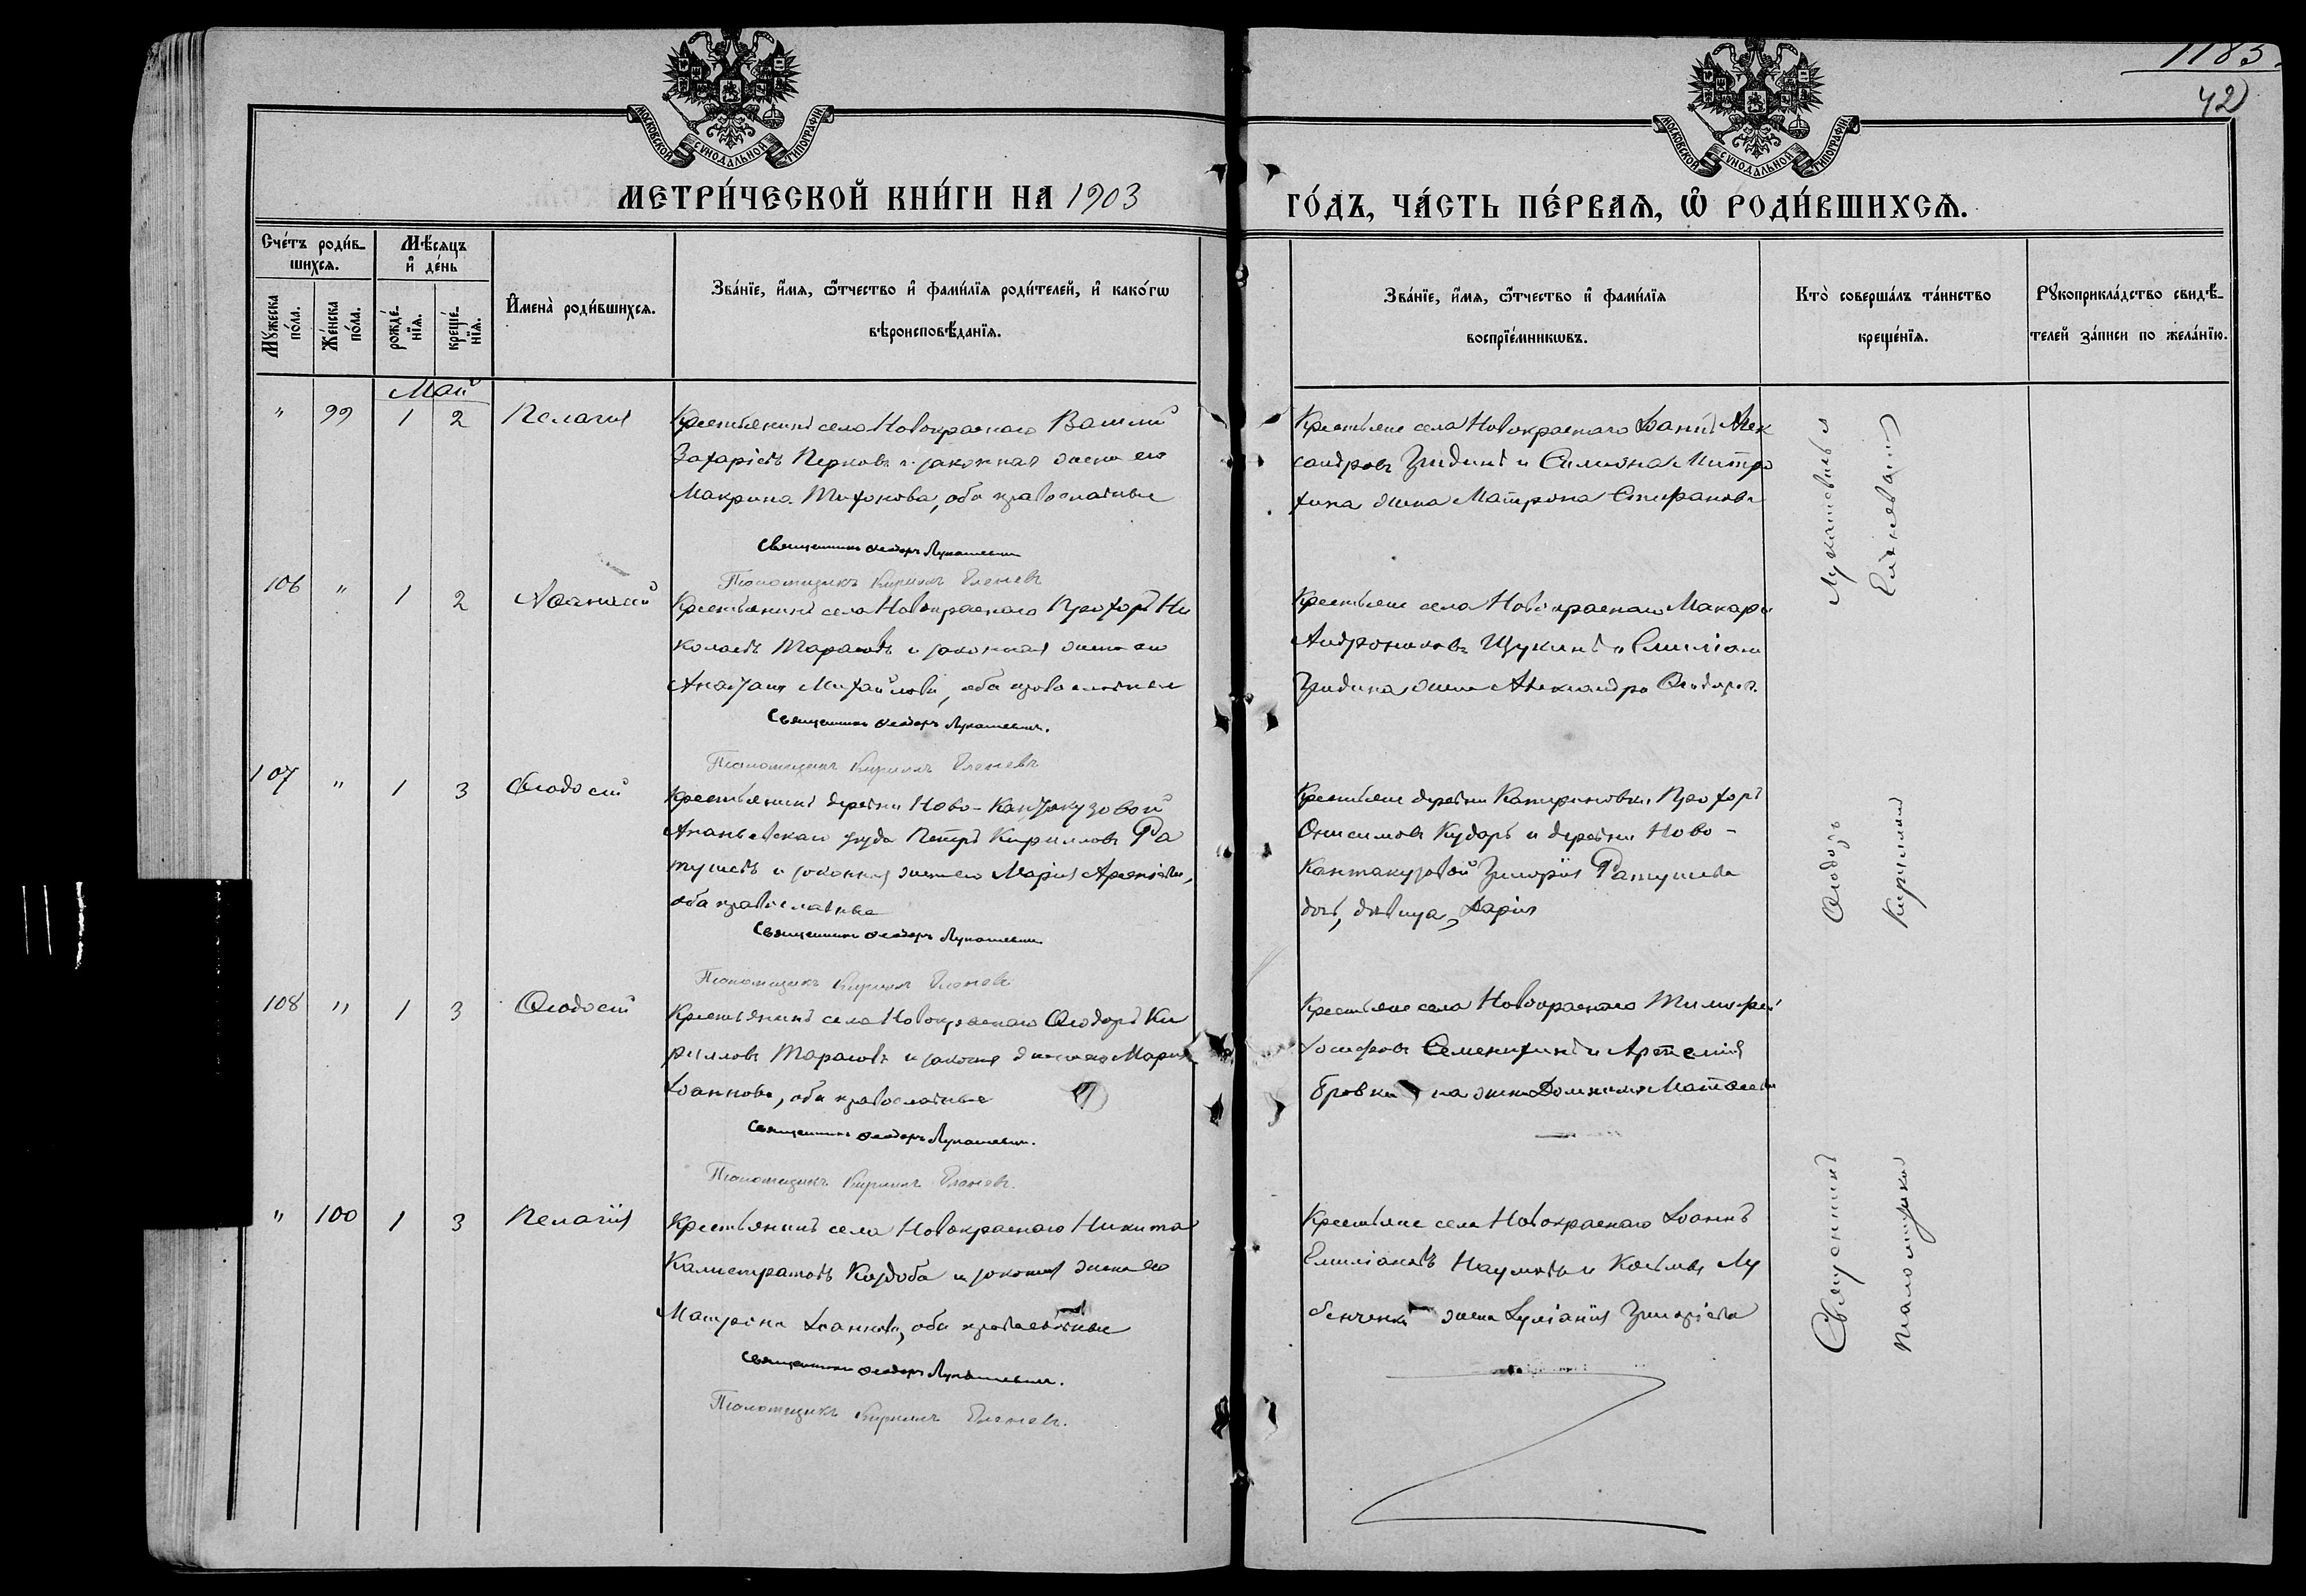 1183.
42
МОСКОВСКОЙ СѴНОДАЛЬНОЙ ТИПОГРАФІИ
МОСКОВСКОЙ СѴНОДАЛЬНОЙ ТИПОГРАФІИ
МЕТРИ́ЧЕСКОЙ КНИ́ГИ НА 1903
ГО́ДЪ, ЧА́СТЬ ПЕ́РВАѦ, Ѽ РОДИ́ВШИХСѦ.
Сче́тъ роди́в-
шихсѧ.
Мѣ́сѧцъ
и҆ де́нь
Мꙋ́жеска
по́ла.
Же́нска
по́ла.
рожде́-
нїѧ.
креще́-
нїѧ.
И҆мена̀ роди́вшихсѧ.
Зва́нїе, и҆́мѧ, ѻ҆́тчество и҆ фами́лїѧ роди́телей, и҆ како́гѡ
вѣроисповѣ́данїѧ.
Зва́нїе, и҆́мѧ, ѻ҆́тчество и҆ фами́лїѧ
воспрїе́мникѡвъ.
Кто̀ соверша́лъ та́инство
креще́нїѧ.
Рꙋкоприкла́дство свидѣ́-
телей за́писи по жела́нїю.
Май
" 99 1 2 Пелагія
Крестьянинъ села Новокраснаго Василій
Захаріевъ Перковъ и законная жена его
Макрина Тихонова, оба православные
Священникъ Ѳеодоръ Лукашевичъ
Псаломщикъ Кириллъ Еленевъ
Крестьяне села Новокраснаго Іоаннъ Алек
сандровъ Гридинъ и Симеона Митро
хина жена Матрона Стефанова
106 " 1 2 Аѳанасій
Крестьянинъ села Новокраснаго Прохоръ Ни
колаевъ Тарасовъ и законная жена его
Анастасія Михайлова, оба православные
Священникъ Ѳеодоръ Лукашевичъ.
Псаломщикъ Кириллъ Еленевъ
Крестьяне села Новокраснаго Макарій
Андрониковъ Щукинъ и Емиліана
Гридина жена Александра Ѳеодоров.
107 " 1 3 Ѳеодосій
Крестьянинъ деревни Ново-Кантакузовой
Ананьевскаго уѣзда Петръ Кирилловъ Ра
тушевъ и законная жена его Марія Арсеніева,
оба православные
Священникъ Ѳеодоръ Лукашевичъ
Псаломщикъ Кириллъ Еленевъ
Крестьяне деревни Катериновки Прохоръ
Онисимовъ Кударь и деревни Ново-
Кантакузовой Григорія Ратушева
дочь, дѣвица, Дарія
108 " 1 3 Ѳеодосій
Крестьянинъ села Новокраснаго Ѳеодоръ Ки
рилловъ Тарасовъ и законная жена его Марія
Іоаннова, оба православные
Священникъ Ѳеодоръ Лукашевичъ.
Псаломщикъ Кириллъ Еленевъ.
Крестьяне села Новокраснаго Тимоѳей
Іосифовъ Семенихинъ и Артемія
Бровки на жена Домникія Матѳеева
" 100 1 3 Пелагія
Крестьянинъ села Новокраснаго Никита
Калистратовъ Коздоба и законная жена его
Матрона Іоаннова, оба православные
Священникъ Ѳеодоръ Лукашевичъ.
Псаломщикъ Кириллъ Еленевъ.
Крестьяне села Новокраснаго Іоаннъ
Емиліановъ Наумовъ и Космы Лу
бенченка жена Іуліанія Григоріева
Священникъ Ѳеодоръ Лукашевичъ
Псаломщикъ Кириллъ Еленевъ